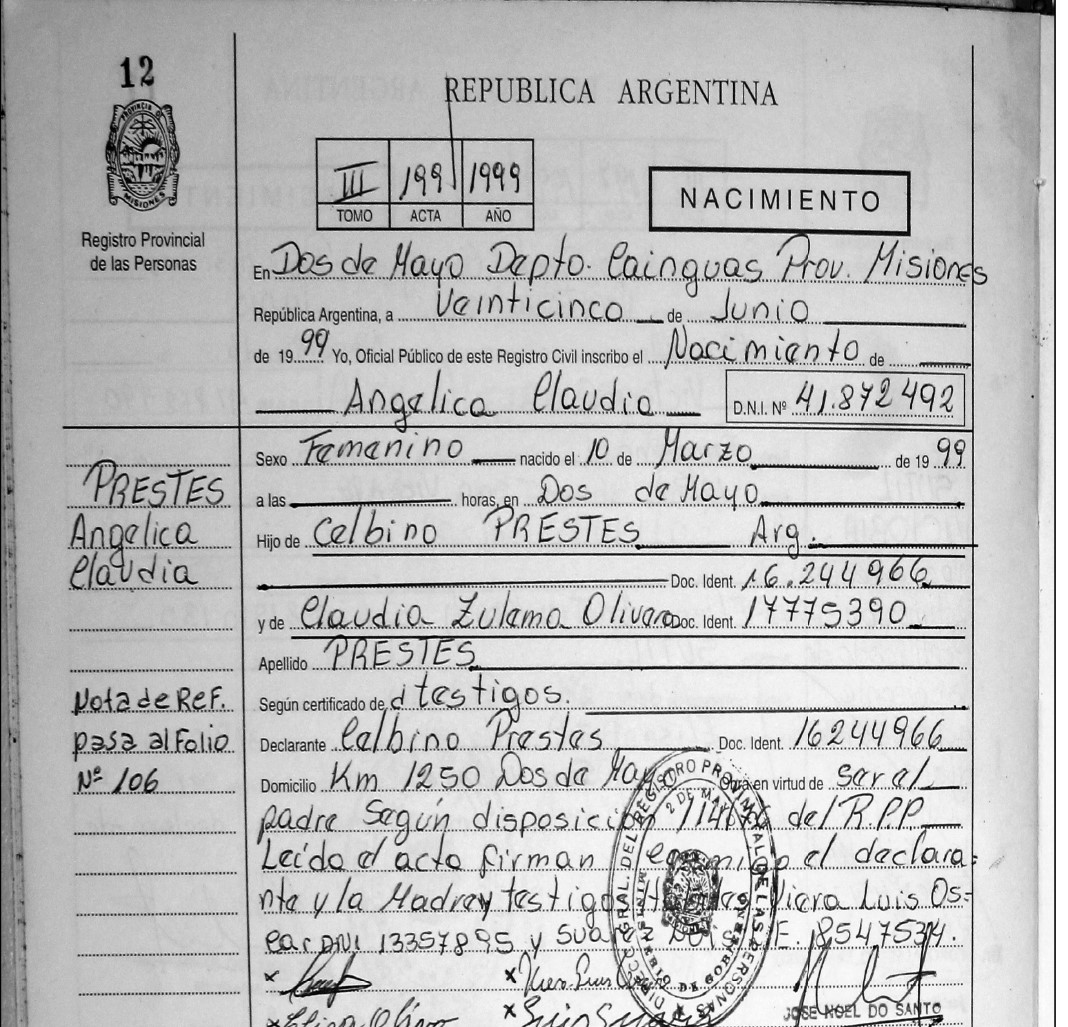 12
REPUBLICA ARGENTINA
PROVINCIA D MISIONES
III 199 1999
TOMO ACTA AÑO
NACIMIENTO
Registro Provincial
de las Personas
En Dos de Mayo Depto. Cainguas Prov. Misiones
República Argentina, a Veinticinco de Junio
de 19 99 Yo, Oficial Público de este Registro Civil inscribo el Nacimiento de
Angelica Claudia D.N.I. Nº 41.872492
Sexo Femenino nacido el 10 de Marzo de 19 99
PRESTES
Angelica
Claudia
a las horas, en Dos de Mayo
Hijo de Celbino PRESTES Arg.
Doc. Ident. 16.244966
y de Claudia Zulema Olivera Doc. Ident. 17775390
Apellido PRESTES
Nota de Ref.
pasa al Folio
Nº 106
Según certificado de d testigos.
Declarante Celbino Prestes Doc. Ident. 16244966
Domicilio Km 1250 Dos de Mayo Obra en virtud de ser el
padre Según disposición del R.P.P
Leído el acta firman el declara=
nte y la Madre y testigos Viera Luis Os=
car DNI 13357895 y E. 8547534.
DIRECC. GRAL. DEL REGISTRO PROVINCIAL DE LAS PERSONAS
2 DE MAYO
MINISTERIO DE GOBIERNO
JOSE NOEL DO SANTO